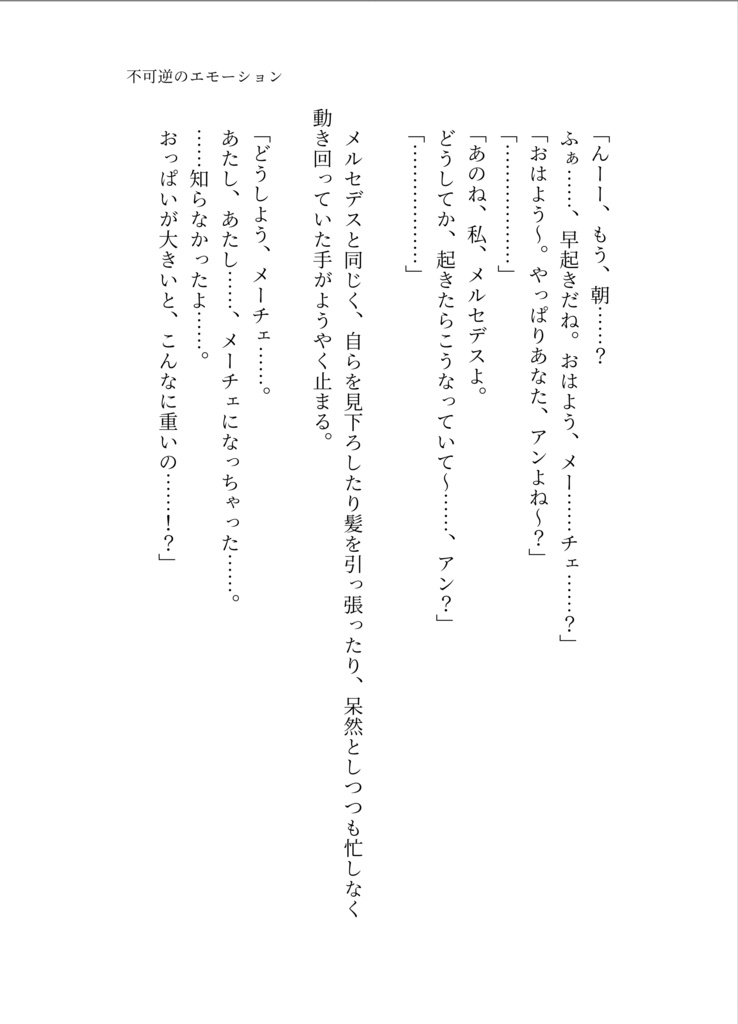 不可逆のエモーション
「んーー、もう、朝……？
ふぁ……、早起きだね。おはよう、メー……チェ……？」
「おはよう～。やっぱりあなた、アンよね～？」
「………………」
「あのね、私、メルセデスよ。
どうしてか、起きたらこうなっていて～……、アン？」
「………………」
メルセデスと同じく、自らを見下ろしたり髪を引っ張ったり、呆然としつつも忙しなく
動き回っていた手がようやく止まる。
「どうしよう、メーチェ……。
あたし、あたし……、メーチェになっちゃった……。
……知らなかったよ……。
おっぱいが大きいと、こんなに重いの……！？」